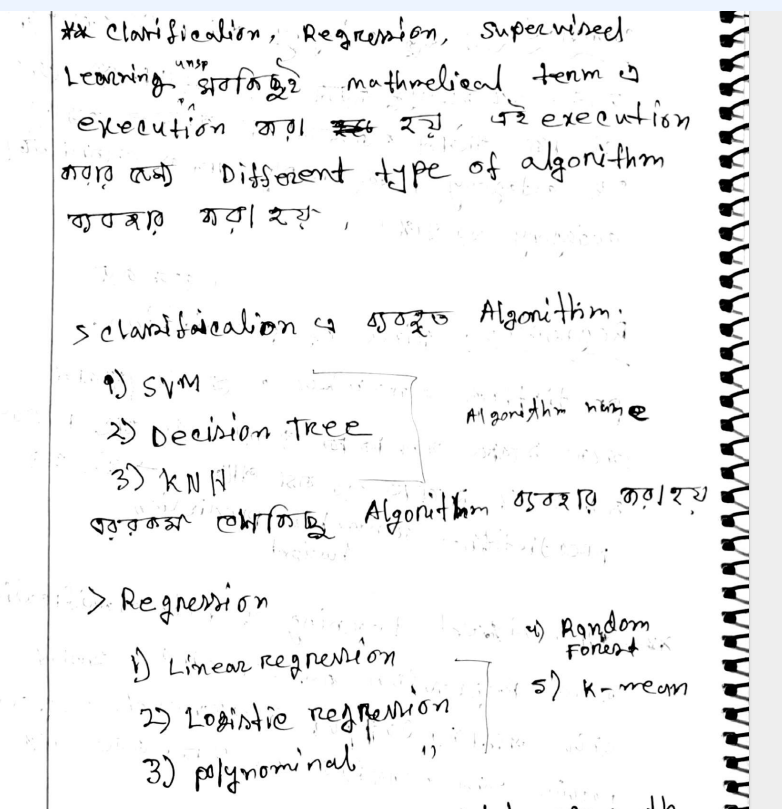 ** Classification, Regression, Supervised
unsp
Learning সবকিছুই mathmetical term এ
execution করা হয়, এই execution
করার জন্য Different type of algorithm
ব্যবহার করা হয়,
classifaication এ ব্যবহৃত Algorithm:
১) SVM
2) Decision Tree
Algorithm name
3) KNN
এরকম বেশকিছু Algorithm ব্যবহার করা হয়
> Regression
1) Linear regression
2) Logistic regression
3) polynominal "
4) Random
Forest
5) K-mean